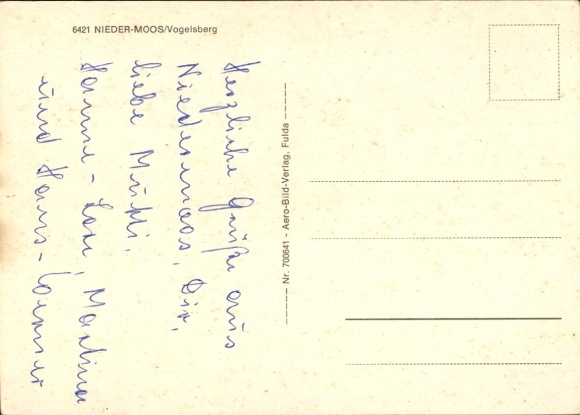 6421 NIEDER-MOOS/Vogelsberg
Herzliche Grüße aus
Niedermoos, Dir,
liebe Mukki,
Hanne-Lore, Martina
und Hans-
Nr. 700641 - Aero-Bild-Verlag, Fulda